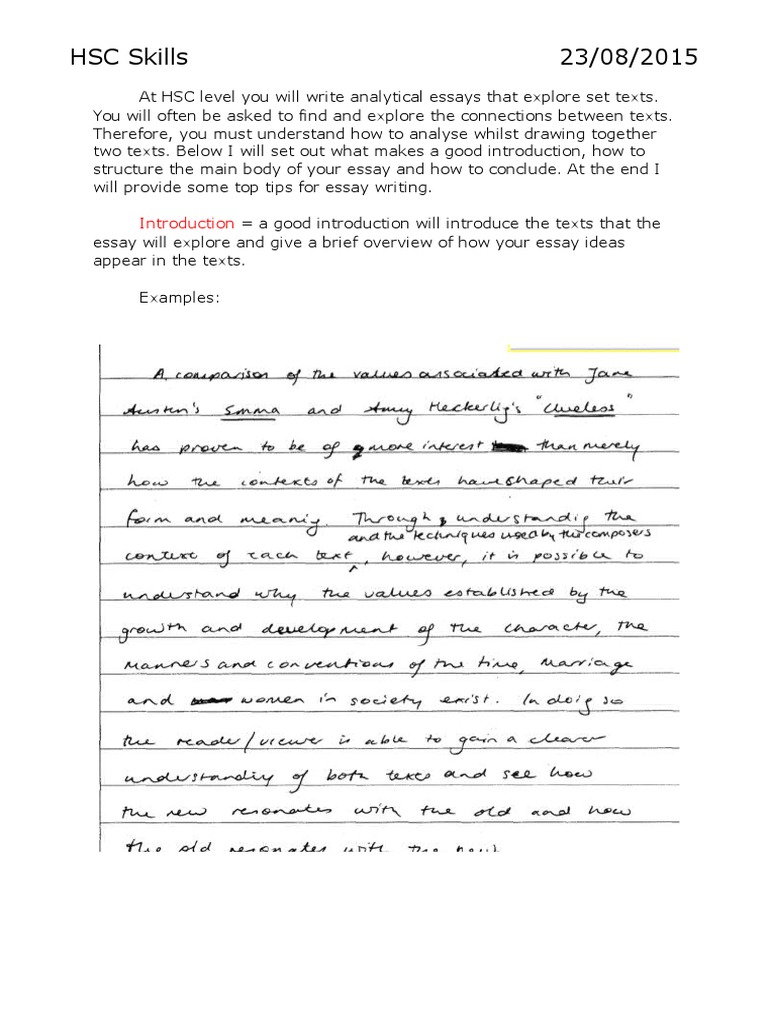 HSC Skills 23/08/2015
At HSC level you will write analytical essays that explore set texts.
You will often be asked to find and explore the connections between texts.
Therefore, you must understand how to analyse whilst drawing together
two texts. Below I will set out what makes a good introduction, how to
structure the main body of your essay and how to conclude. At the end I
will provide some top tips for essay writing.
Introduction = a good introduction will introduce the texts that the
essay will explore and give a brief overview of how your essay ideas
appear in the texts.
Examples:
A comparison of the values associated with Jane
Austen's Emma and Amy Heckerlig's "Clueless"
has proven to be of more interest than merely
how the contexts of the texts have shaped their
form and meaning. Through understandig the
and the techniques used by the composers
context of each text, however, it is possible to
understand why the values established by the
growth and development of the character, the
manners and conventions of the time, marriage
and women in society exist. In doig so
the reader/viewer is able to gain a clearer
understandig of both texts and see how
the new resonates with the old and how
the old resonates with the new.